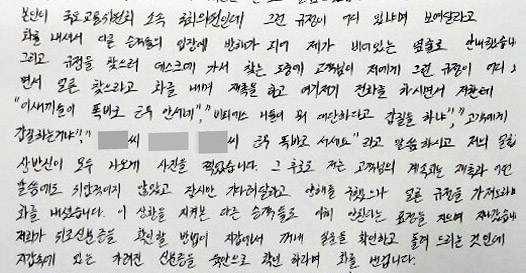 본인이 국토교통위원회 소속 국회의원인데 그런 규정이 어디 있냐며 보여달라고
화를 내셔서 다른 승객들의 입장에 방해가 되어 제가 비어있는 옆으로 안내했습니다
그리고 규정을 찾으러 데스크에 가서 찾는 도중에 고객님이 저에게 그런 규정이 어디
면서 얼른 찾으라고 화를 내며 재촉을 하고 여기저기 전화를 하시면서 저한테
"이새끼들이 똑바로 근무 안서네", "너희들이 뭐 대단하다고 갑질을 하냐", "고객에게
갑질하는거냐", " 씨 씨 씨 근무 똑바로 서세요"라고 말씀하시고 저의 얼굴
상반신이 모두 나오게 사진을 찍었습니다. 그 후로도 저는 고객님의 계속되는 재촉과
말씀에도 위압적이지 않았고 잠시만 기다려달라고 양해를 구했으나 얼른 규정을 가져오라며
화를 내셨습니다. 이 상황을 지켜본 다른 승객들도 표정을 지으며 지나갔습니다
저희가 위조신분증을 확인할 방법이 지갑에서 꺼내 앞뒤를 확인하고 돌려 드리는 것인데
지갑속에 있는 가려진 신분증을 육안으로 확인 하라며 화를 냅니다.